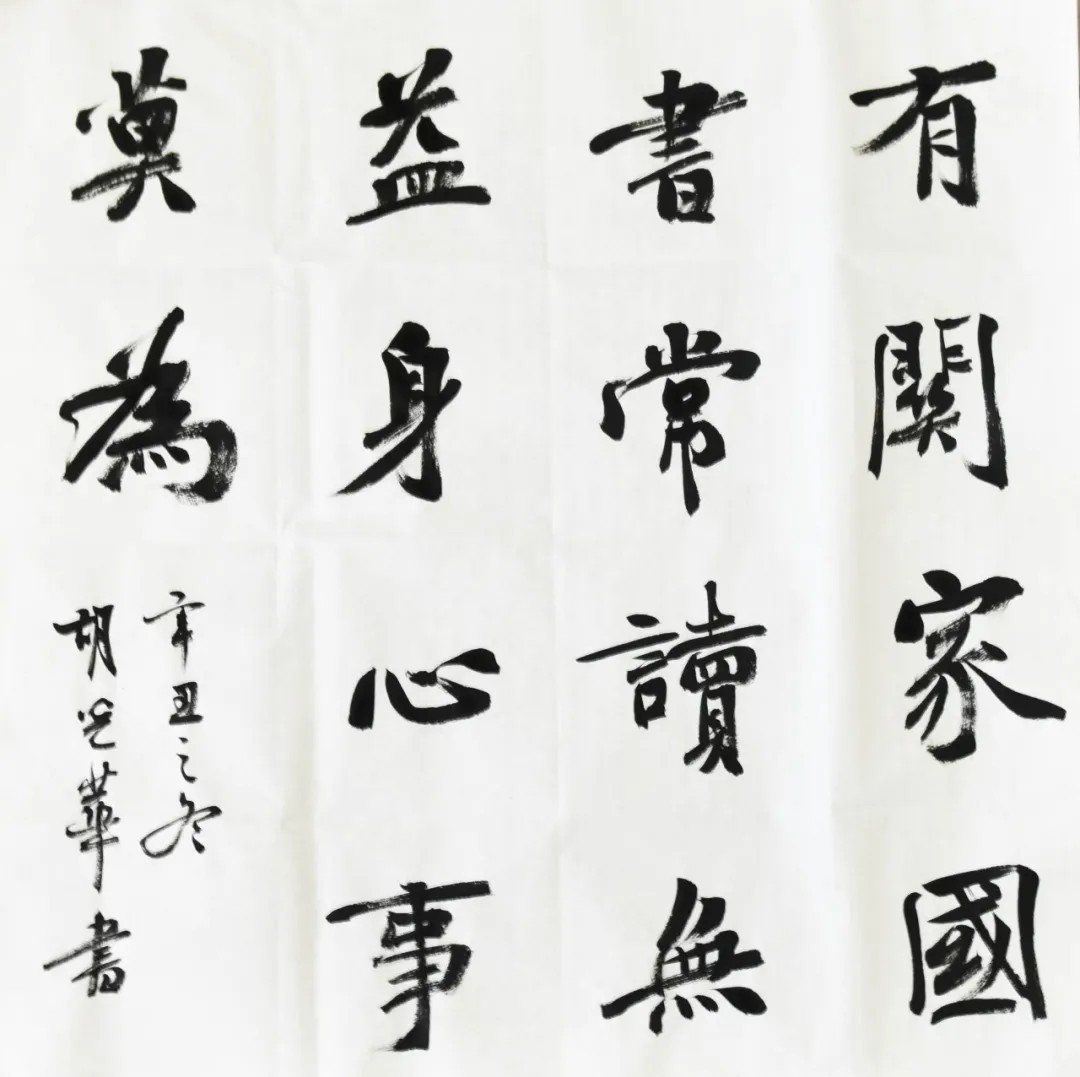 有關家國
書常讀無
益身心事
莫為
辛丑之冬
胡光華書